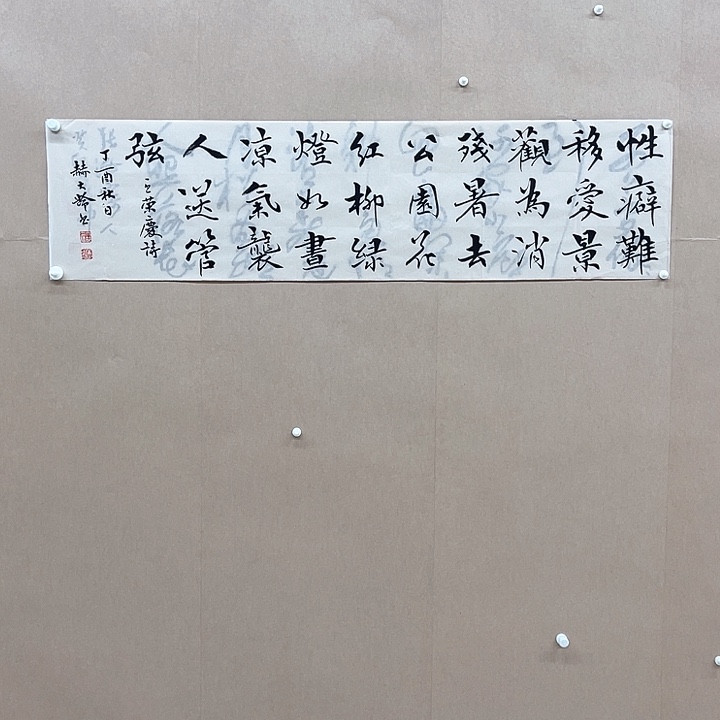 性癖難
移愛景
觀為消
殘暑去
公園花
紅柳绿
燈如晝
凉氣襲
人送管
弦
榮慶詩
丁酉秋日
赫大龄书